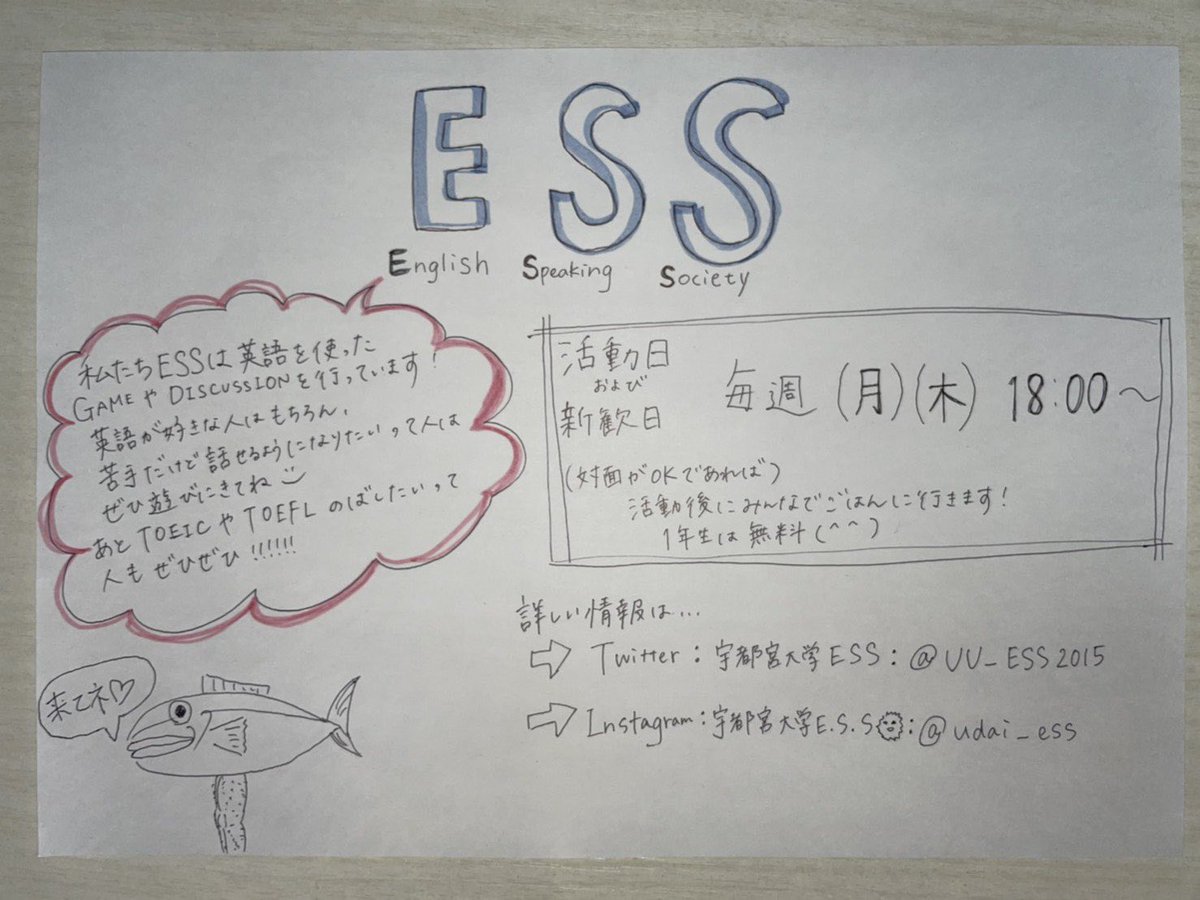 ESS
English Speaking Society
私たちESSは英語を使った
GAMEやDISCUSSIONを行っています!
英語が好きな人はもちろん、
苦手だけど話せるようになりたいって人は
ぜひ遊びにきてね
あとTOEICやTOEFLのばしたいって
人もぜひぜひ!!!!!!
活動日
および
新歓日
毎週(月)(木) 18:00〜
(対面がOKであれば)
活動後にみんなでごはんに行きます!
1年生は無料(^^)
詳しい情報は...
⇨ Twitter:宇都宮大学ESS:@UU_ESS2015
⇨ Instagram:宇都宮大学E.S.S:@udai_ess
来てネ♡